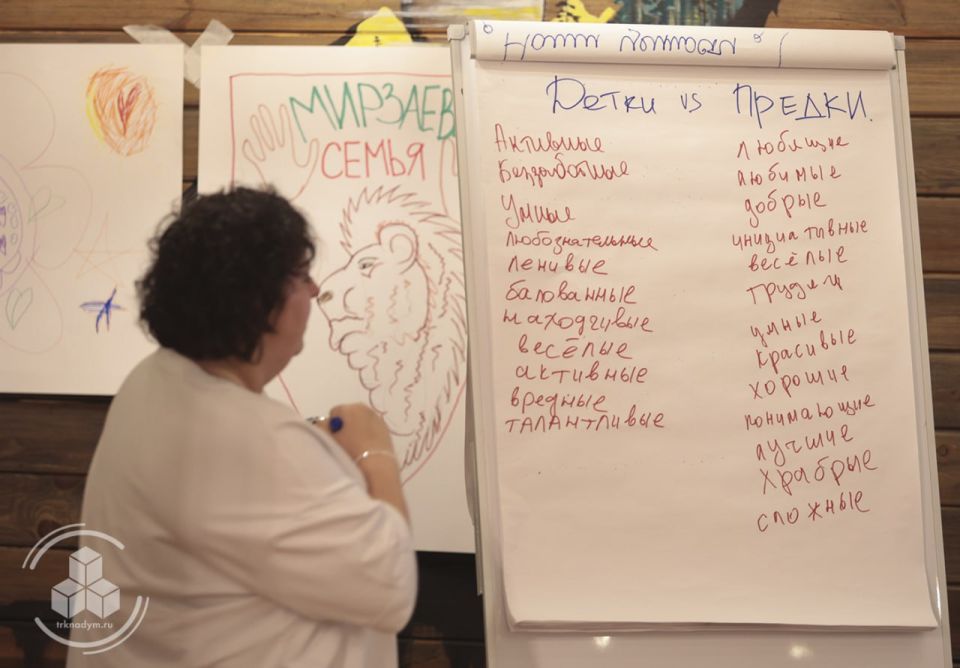 МИРЗАЕВ
СЕМЬЯ
Детки vs ПРЕДКИ.
Активные
Беззаботные
Умные
Любознательные
Ленивые
балованные
находчивые
весёлые
активные
вредные
ТАЛАНТЛИВЫЕ
любящие
любимые
добрые
инициативные
весёлые
умные
красивые
хорошие
понимающие
лучшие
храбрые
сложные
trknadym.ru